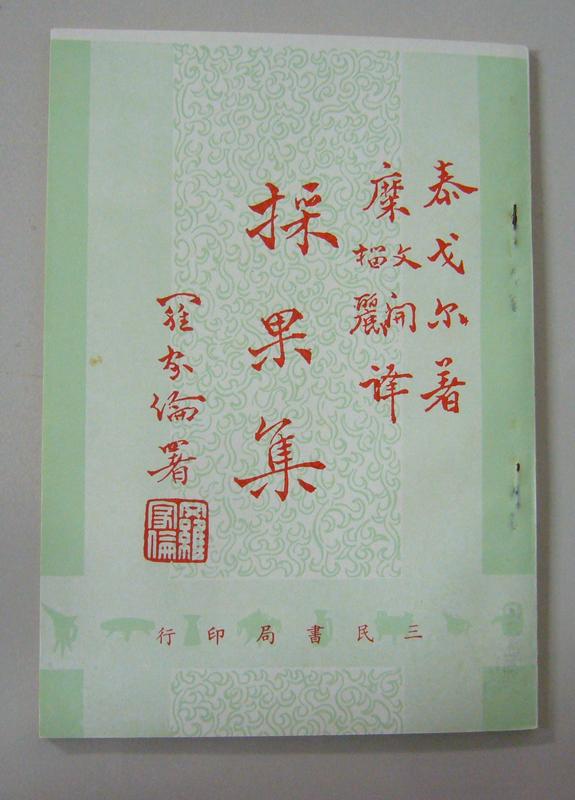 泰戈尔著
糜文開榴麗譯
採果集
羅家倫署
羅家倫
三民書局印行